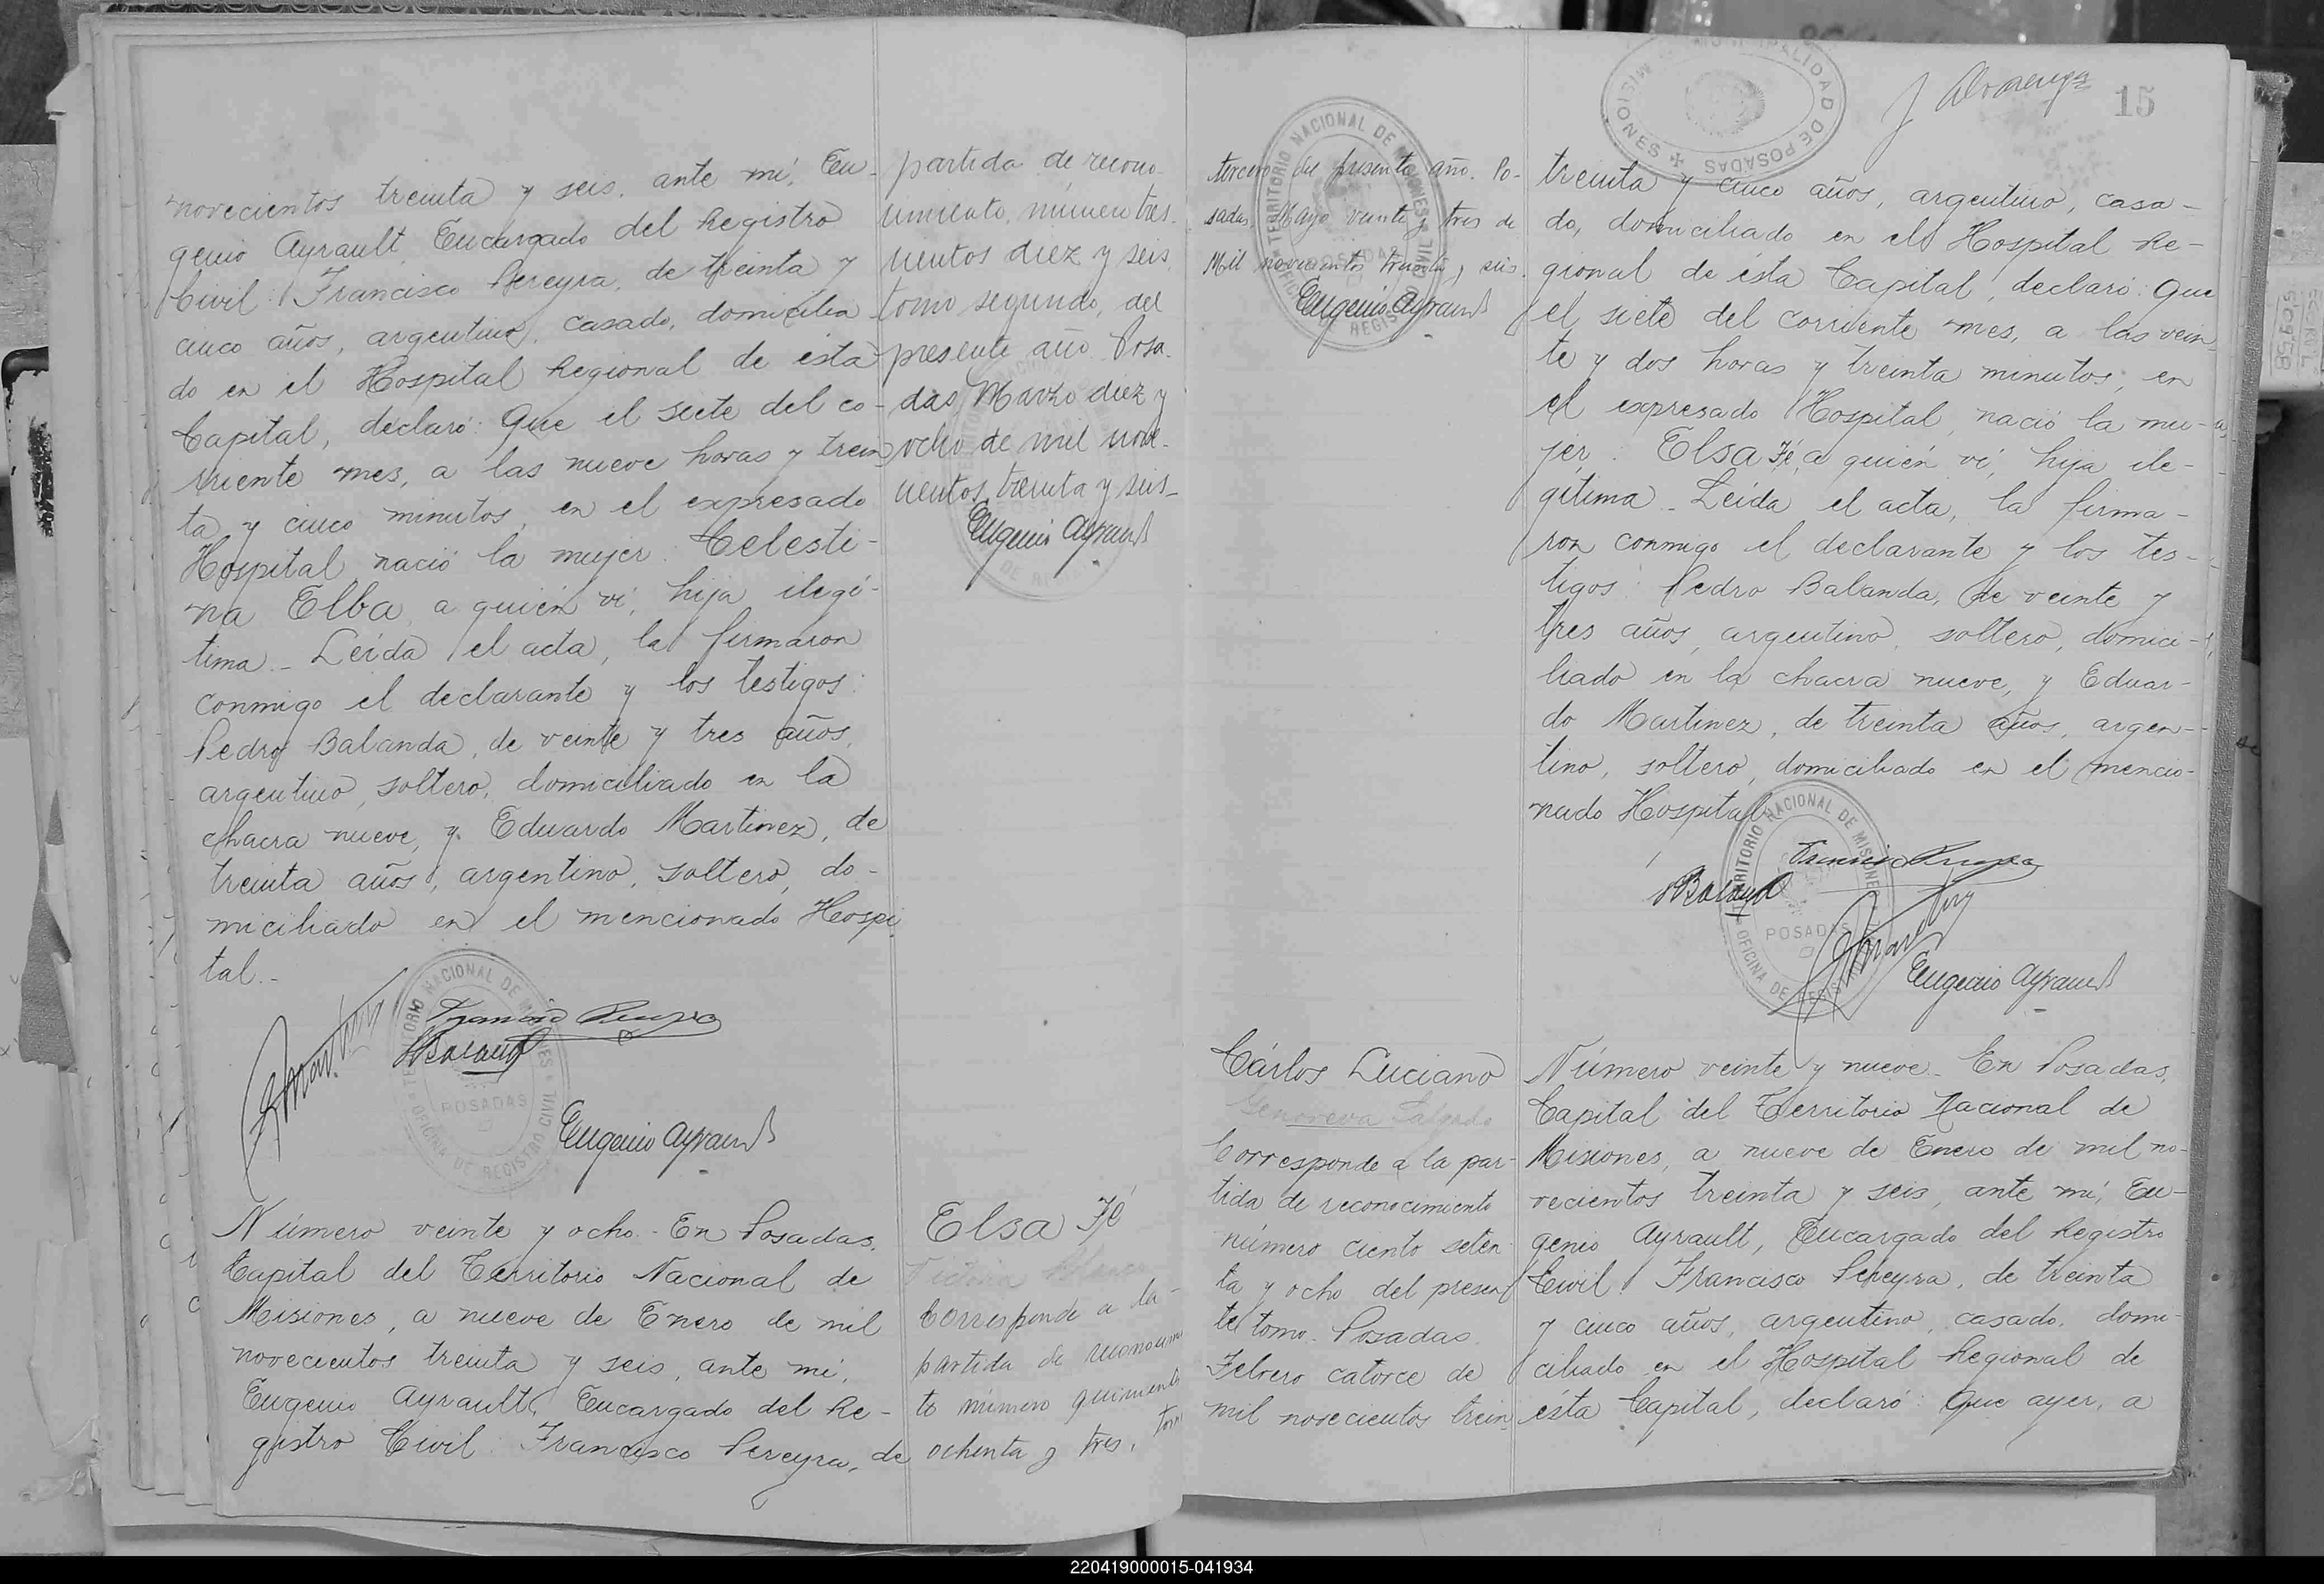 novecientos treinta y seis, ante mí, Eu-
genio Ayrault, Encargado del Registro
Civil: Francisco Pereyra, de treinta y
cinco años, argentino, casado, domicilia
do en el Hospital Regional de ésta
Capital, declaró: Que el siete del co-
rriente mes, a las nueve horas y trein
ta y cinco minutos, en el expresado
Hospital nació la mujer: Celesti-
na Elba, a quién ví, hija ilegí-
tima.- Leída el acta, la firmaron
conmigo el declarante y los testigos:
Pedro Balanda, de veinte y tres años,
argentino, soltero, domiciliado en la
chacra nueve, y Eduardo Martinez, de
treinta años, argentino, soltero, do-
miciliado en el mencionado Hospi
tal.-
TERRITORIO NACIONAL DE MISIONES
POSADAS
OFICINA DE REGISTRO CIVIL
Eugenio Ayrault
Número veinte y ocho.- En Posadas,
Capital del Territorio Nacional de
Misiones, a nueve de Enero de mil
novecientos treinta y seis, ante mí,
Eugenio Ayrault, Encargado del Re-
gistro Civil: Francisco Pereyra, de
partida de recono-
cimiento, número tres-
cientos diez y seis,
tomo segundo, del
presente año. Posa-
das, Marzo diez y
ocho de mil nove-
cientos treinta y seis-
Eugenio Ayrault
Elsa Fé
Corresponde a la
partida de reconocimien
to número quinientos
ochenta y tres, tomo
tercero del presente año. Po-
sadas, Mayo veinte y tres de
Mil novecientos treinta y seis.
Eugenio Ayrault
TERRITORIO NACIONAL DE MISIONES
POSADAS
OFICINA DE REGISTRO CIVIL
Cárlos Luciano
Genoveva Salgado
Corresponde a la par-
tida de reconocimiento
número ciento seten
ta y ocho del presen
te tomo. Posadas.
Febrero catorce de
mil novecientos trein
MUNICIPALIDAD DE POSADAS
MISIONES
15
treinta y cinco años, argentino, casa-
do, domiciliado en el Hospital Re-
gional de ésta Capital, declaró: Que
el siete del corriente mes, a las vein
te y dos horas y treinta minutos, en
el expresado Hospital, nació la mu-
jer: Elsa Fé, a quién ví, hija ile-
gítima.- Leída el acta, la firma-
ron conmigo el declarante y los tes-
tigos: Pedro Balanda, de veinte y
tres años, argentino, soltero, domici-
liado en la chacra nueve, y Eduar-
do Martinez, de treinta años, argen-
tino, soltero, domiciliado en el mencio-
nado Hospital
TERRITORIO NACIONAL DE MISIONES
POSADAS
Eugenio Ayrault
Número veinte y nueve.- En Posadas,
Capital del Territorio Nacional de
Misiones, a nueve de Enero de mil no-
vecientos treinta y seis, ante mí, Eu-
genio Ayrault, Encargado del Registro
Civil: Francisco Pereyra, de treinta
y cinco años, argentino, casado, domi-
ciliado en el Hospital Regional de
ésta Capital, declaró: Que ayer, a
220419000015-041934